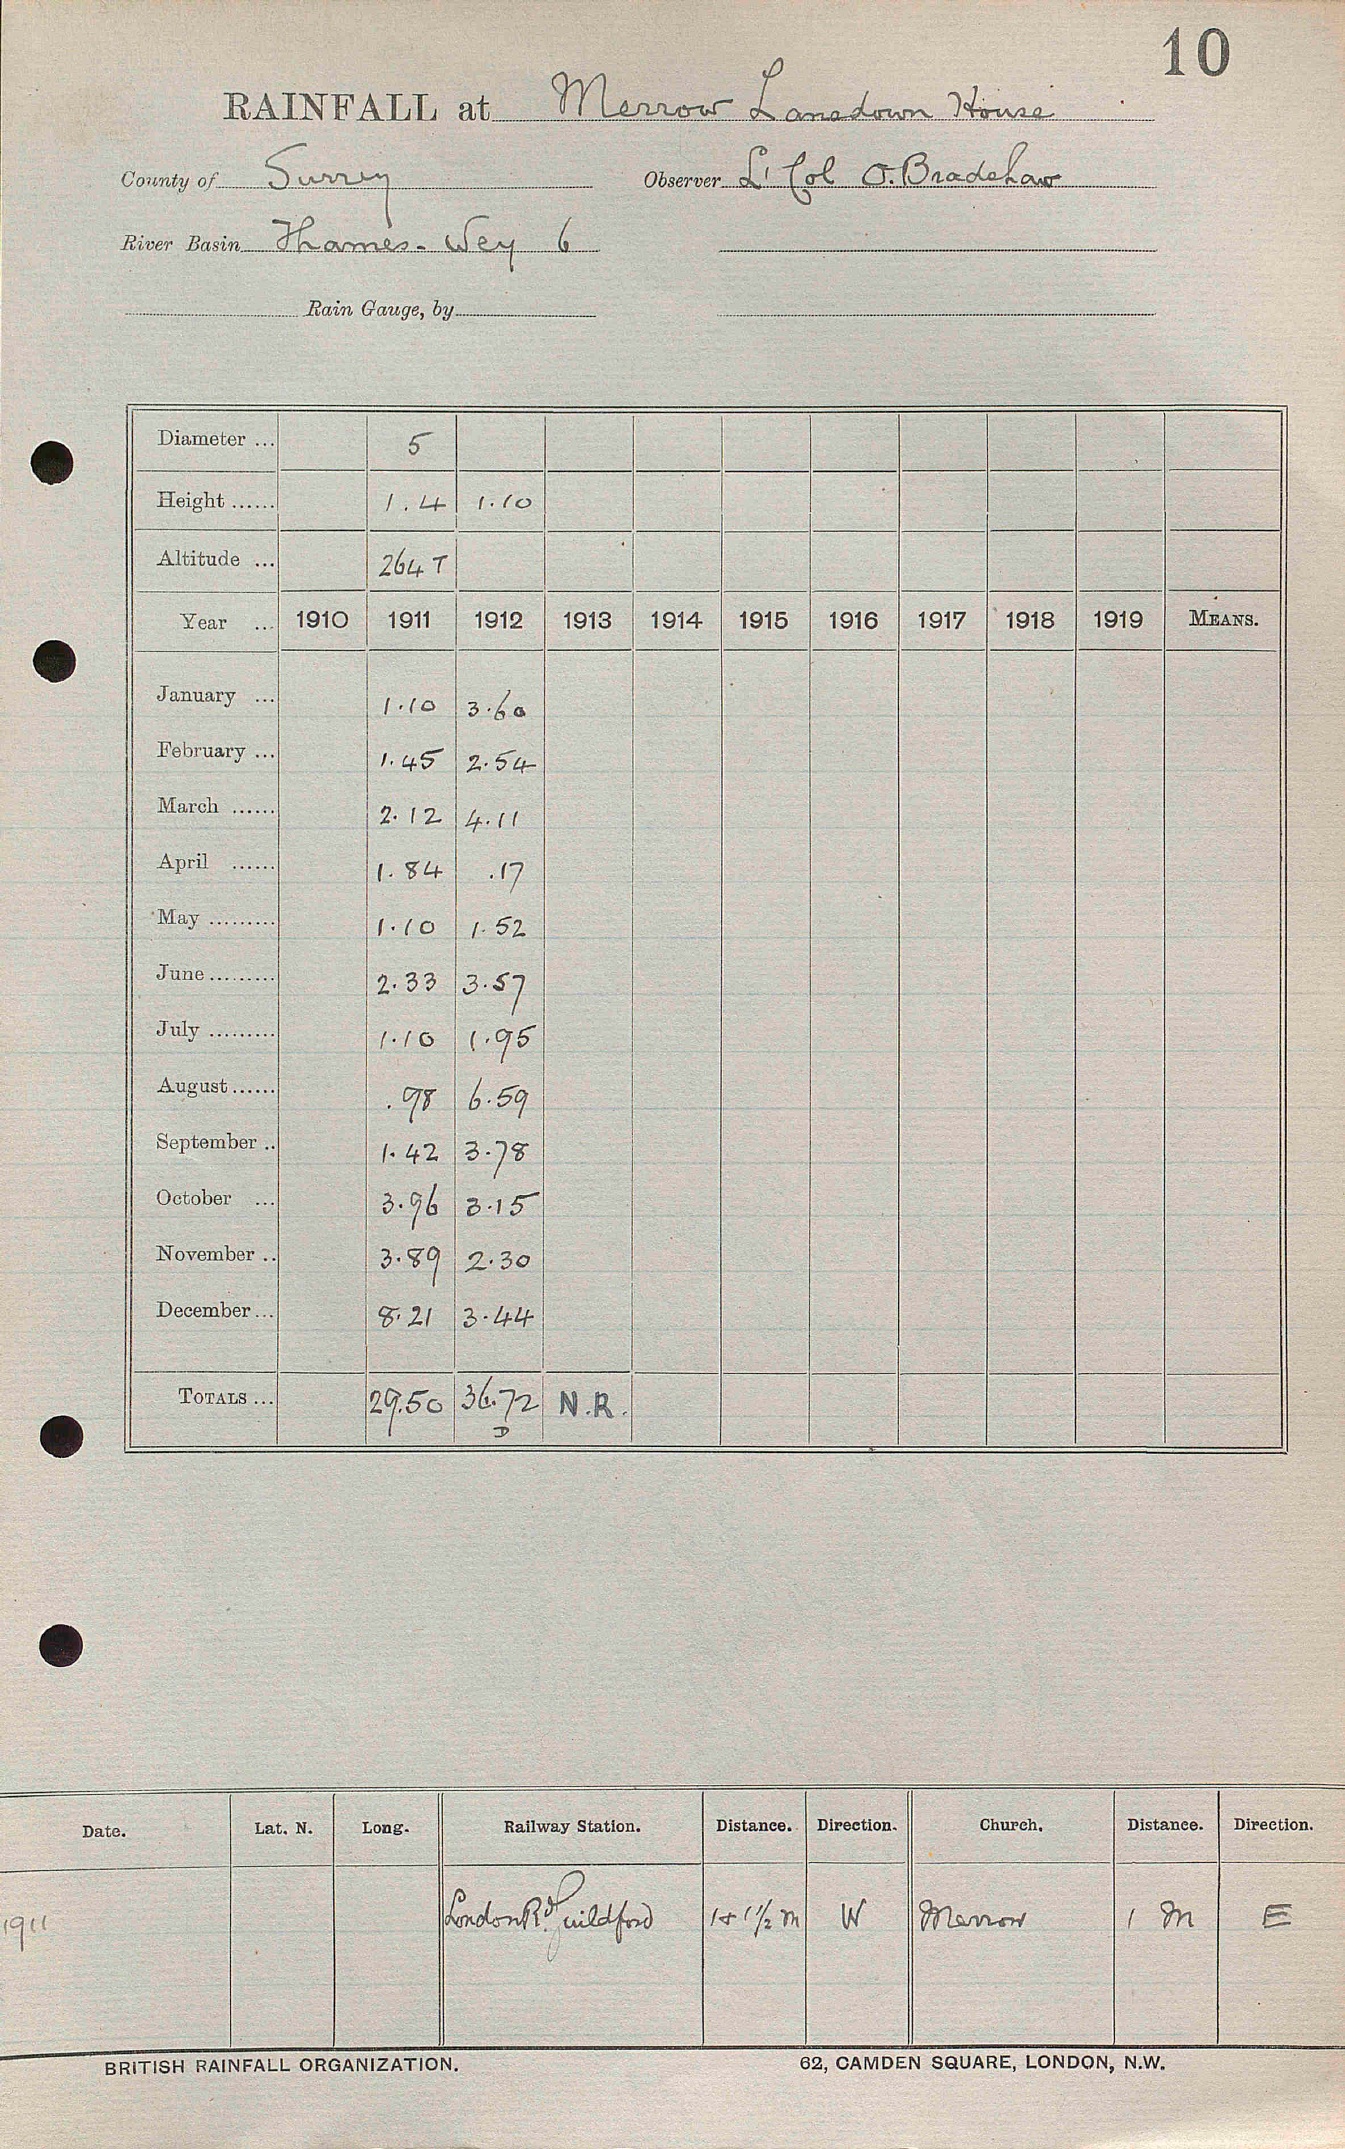 10
RAINFALL at Merrow Lansdown House
County of Surrey Observer Lt Col O. Bradshaw
River Basin Thames - Wey 6
Rain Gauge, by
Diameter ... 5
Height ...... 1.4 1.10
Altitude ... 264 T
Year ... 1910 1911 1912 1913 1914 1915 1916 1917 1918 1919 MEANS.
January ... 1.10 3.60
February ... 1.45 2.54
March ...... 2.12 4.11
April ...... 1.84 .17
May ......... 1.10 1.52
June ......... 2.33 3.57
July ......... 1.10 1.95
August ...... .98 6.59
September .. 1.42 3.78
October ... 3.96 3.15
November .. 3.89 2.30
December ... 8.21 3.44
TOTALS ... 29.50 36.72 N.R.
D
Date. Lat. N. Long. Railway Station. Distance. Direction. Church. Distance. Direction.
1911 London Rd. Guildford 1 & 1 1/2 m W Merrow 1 M E
BRITISH RAINFALL ORGANIZATION. 62, CAMDEN SQUARE, LONDON, N.W.